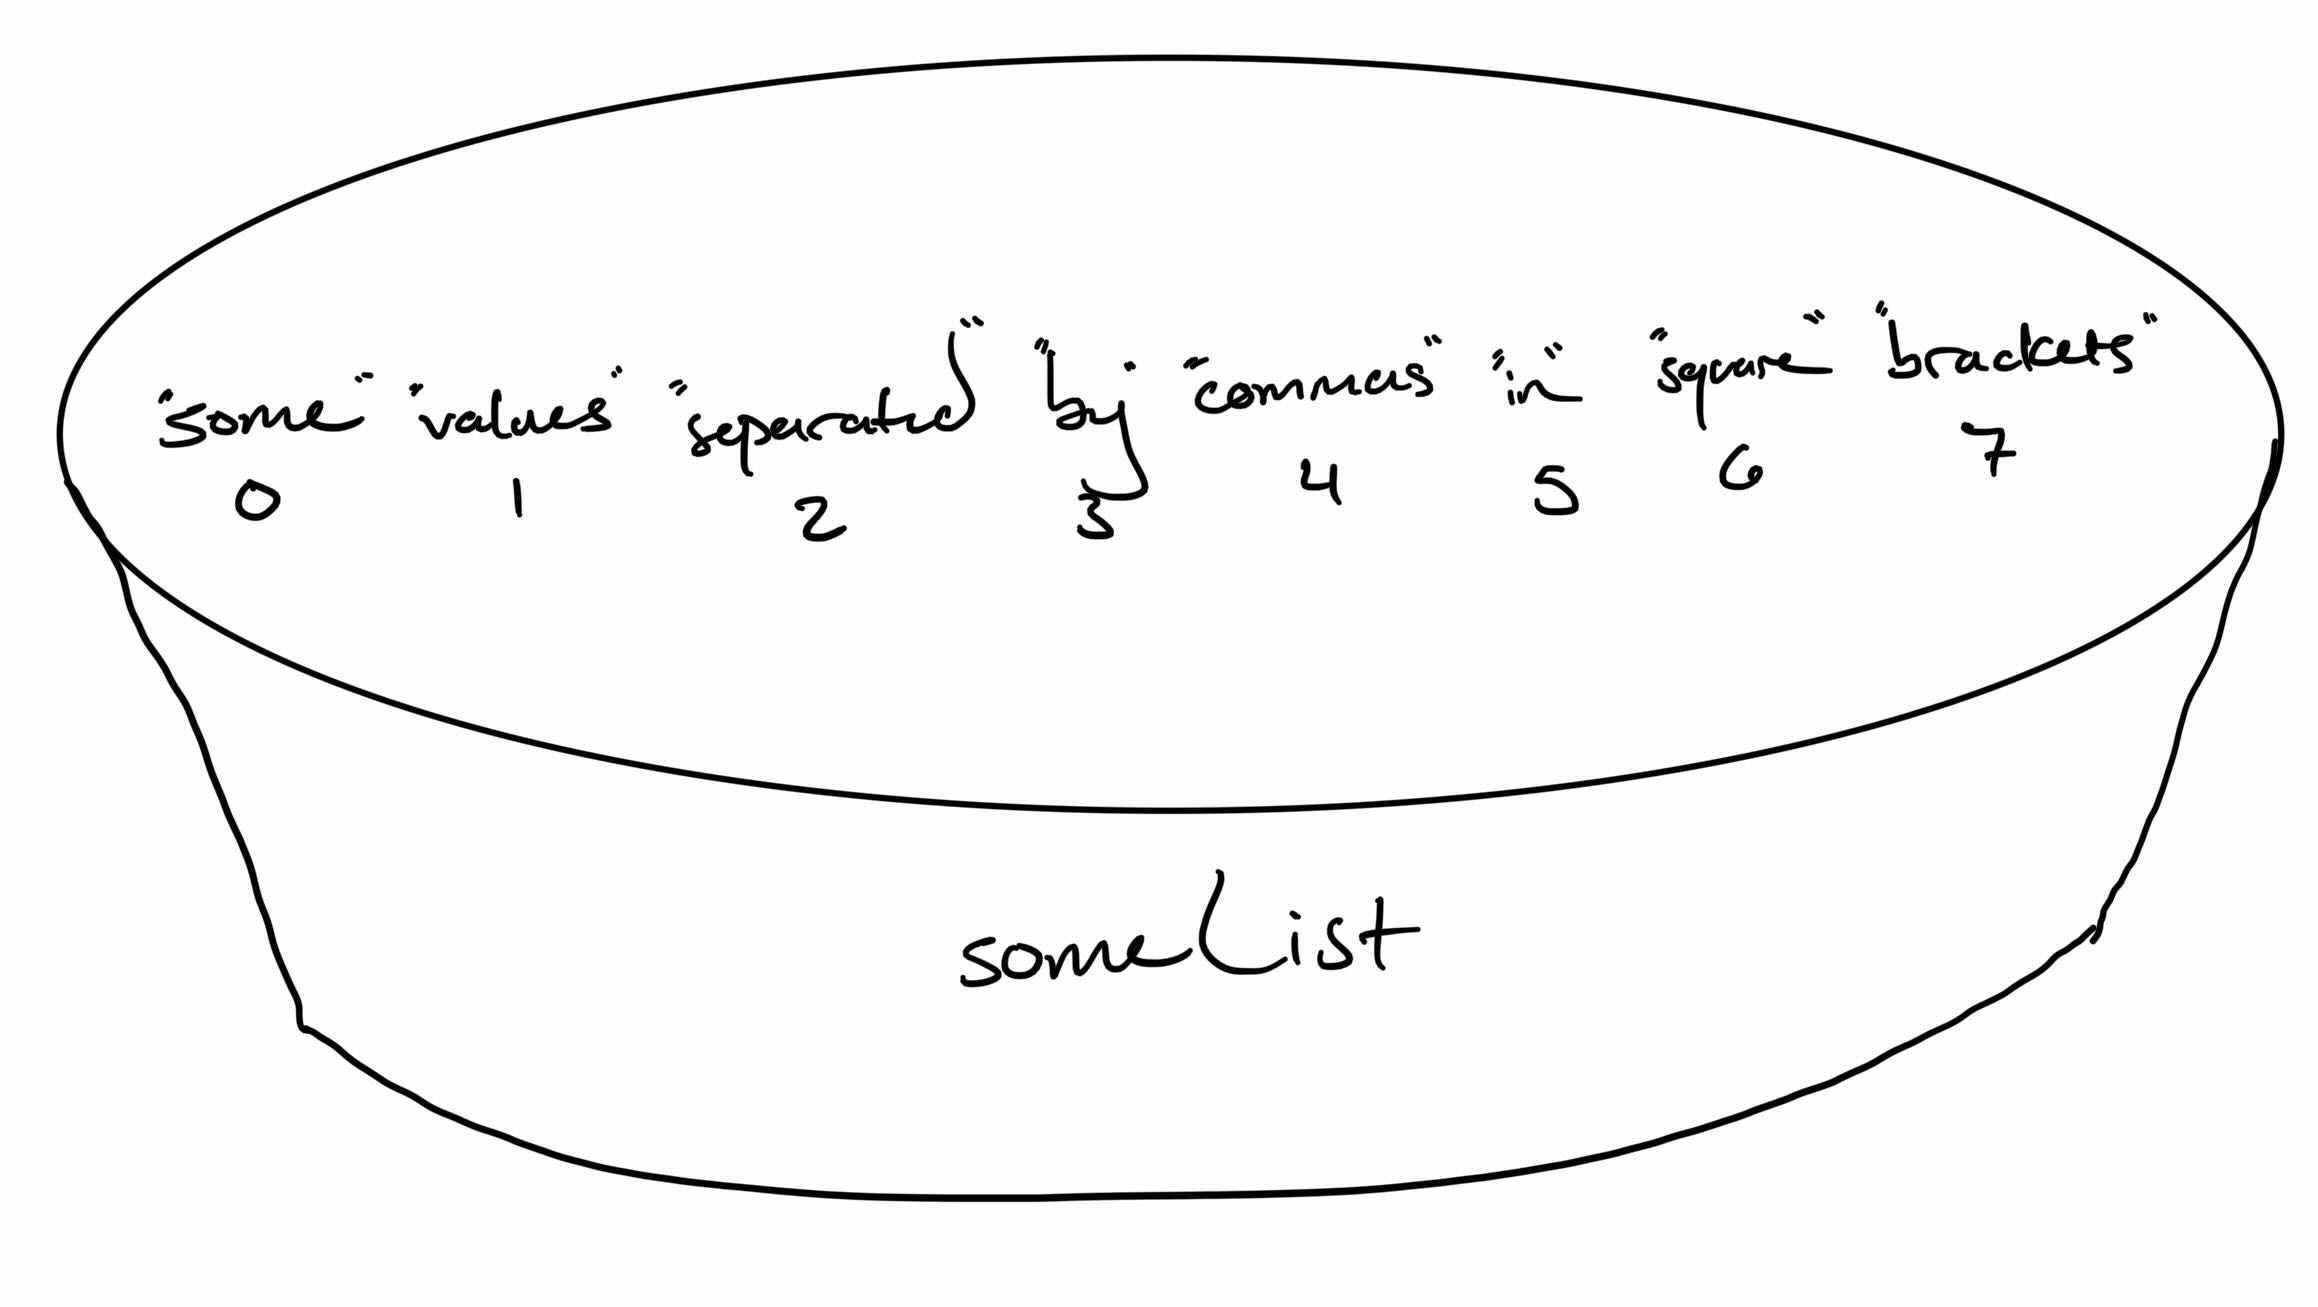 "some" "values" "separated" "by" "commas" "in" "square" "brackets"
0 1 2 3 4 5 6 7
someList